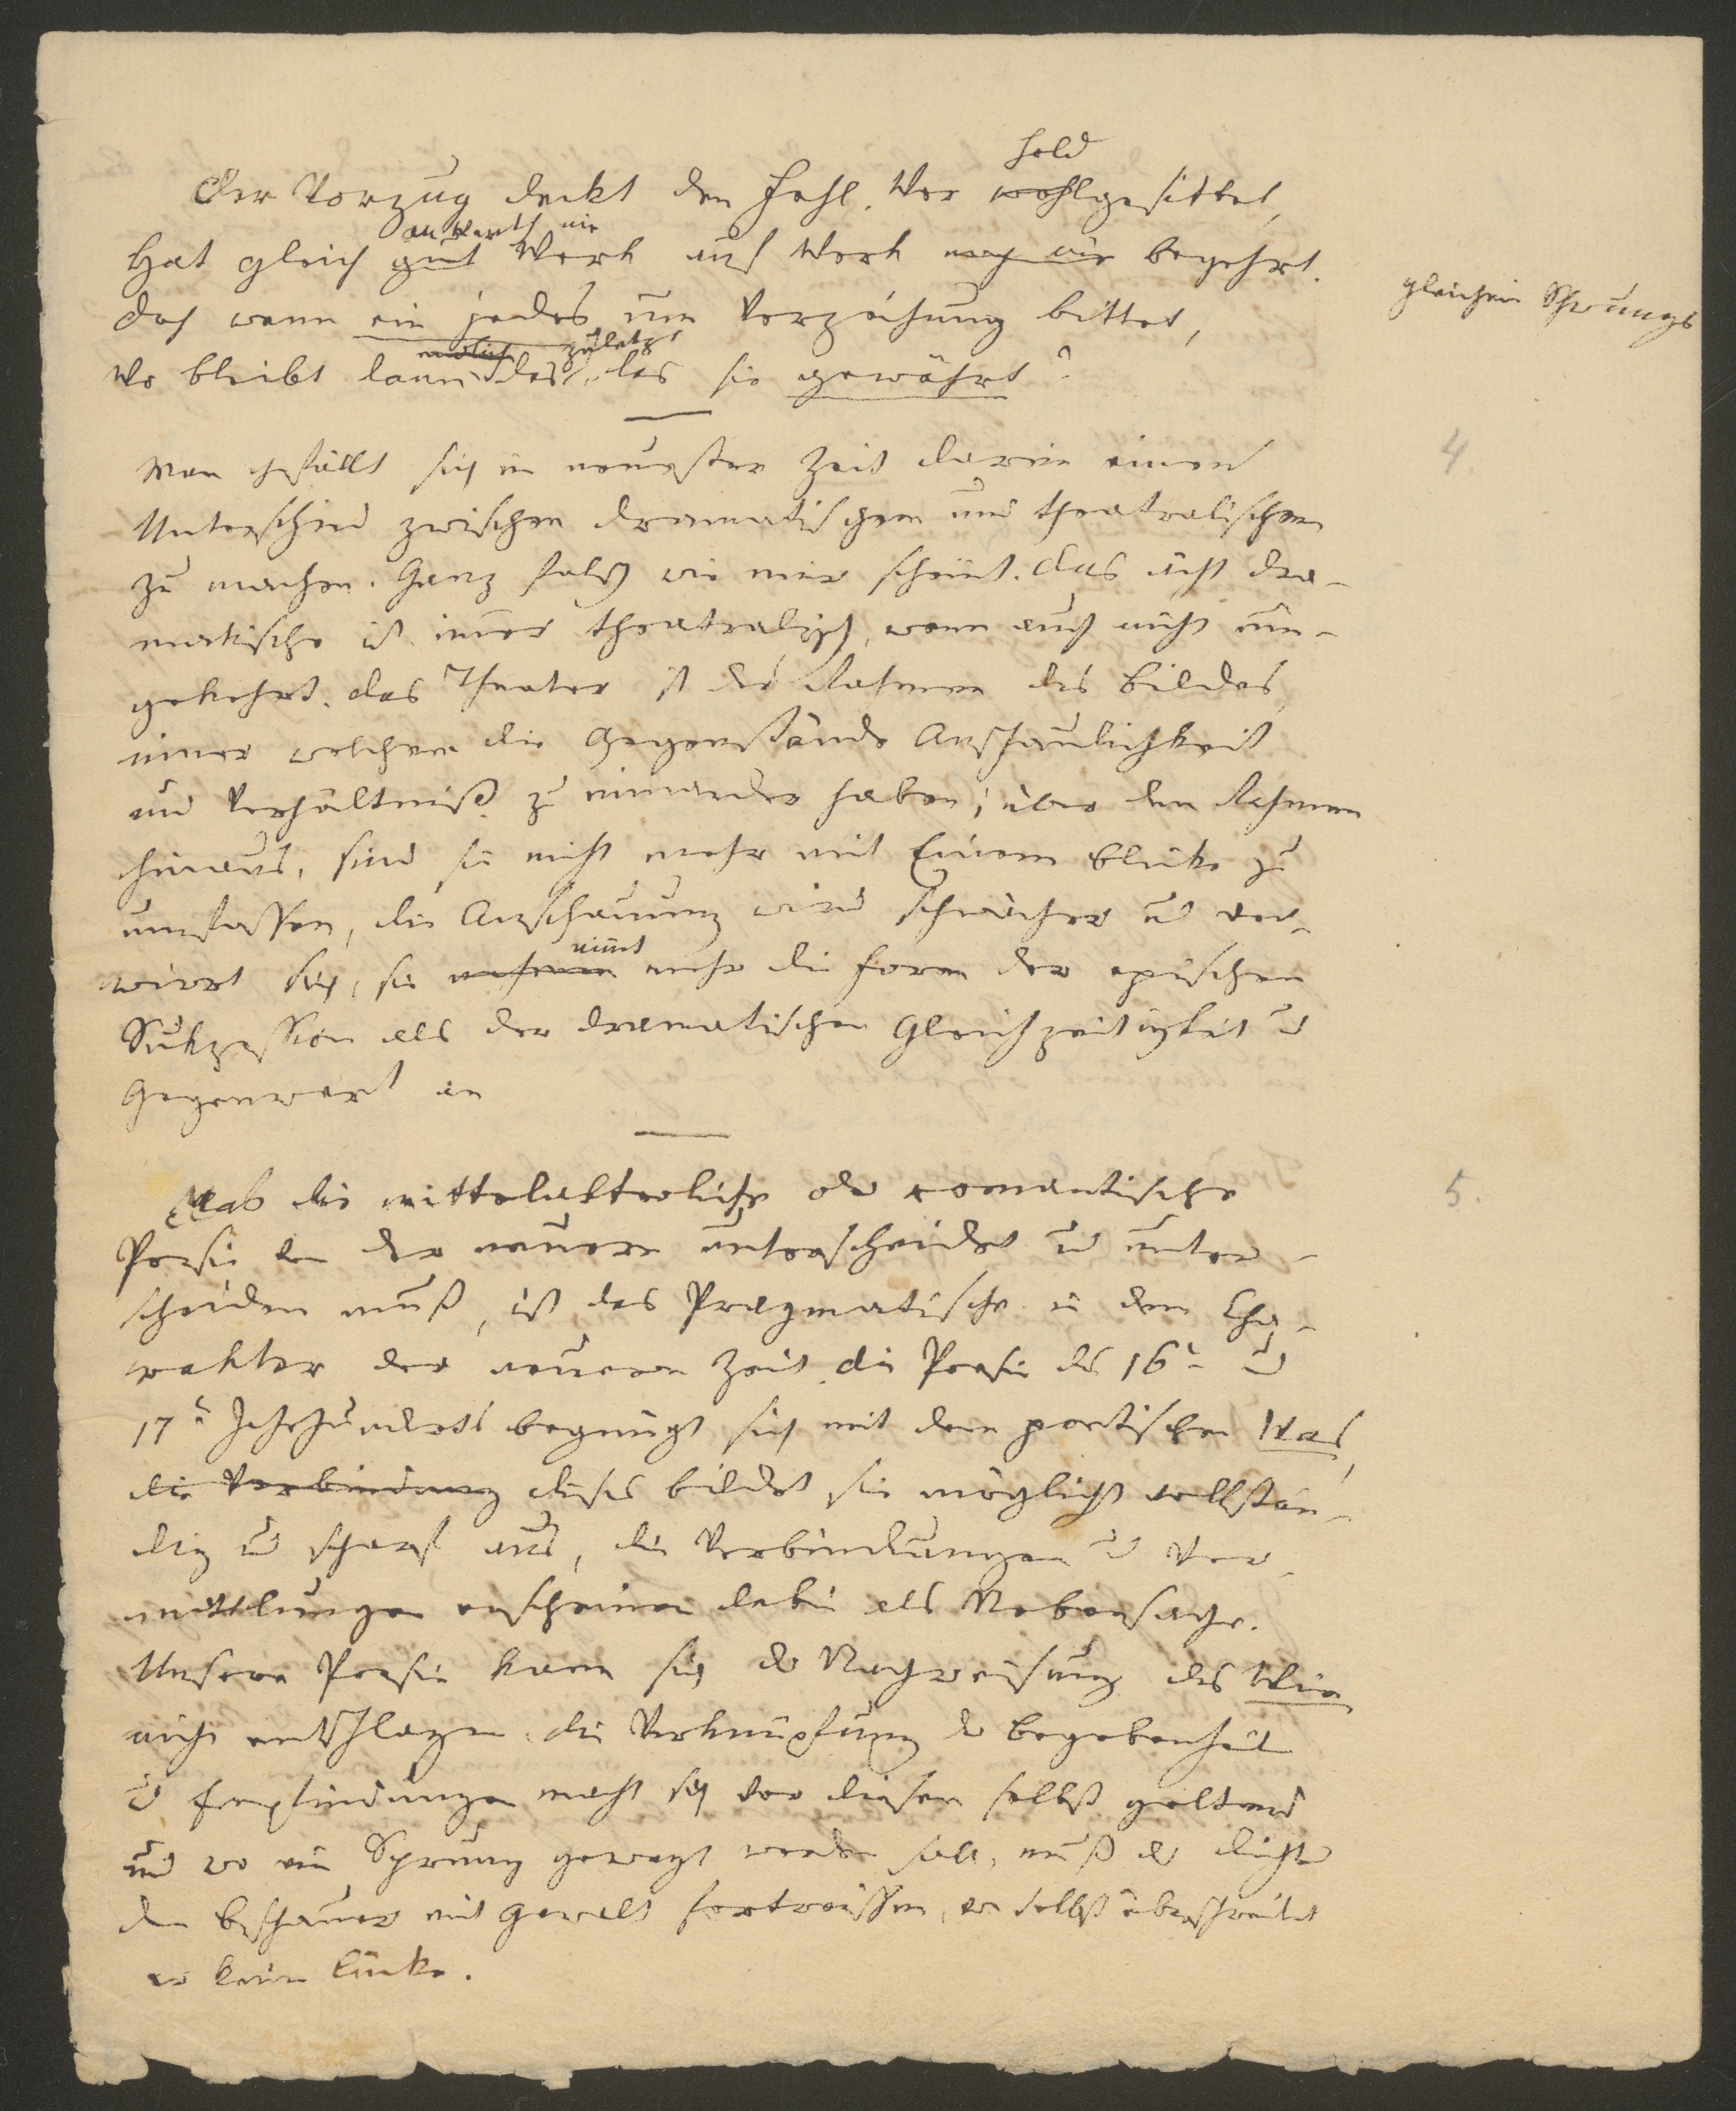 hold
Der Vorzug deckt den Fehl. Wer wohlgesittet,
an Werth nie
Hat gleich gut Werk auf Werk noch nie begehrt.
gleichen Schwungs
Doch wenn ein jedes um Verzeihung bittet,
endlich zuletzt
Wo bleibt dann das, das sie gewährt?
4.
Man gefällt sich in neuester Zeit darin einen
Unterschied zwischen dramatischem und theatralischem
zu machen. Ganz falsch wie mir scheint. Das ächt dra-
matische ist immer theatralisch, wenn auch nicht um-
gekehrt. Das Theater ist der Rahmen des Bildes,
inner welchem die Gegenstände Anschaulichkeit
und Verhältniß zu einander haben; über den Rahmen
hinaus, sind sie nicht mehr mit Einem Blicke zu
umfassen, die Anschauung wird schwächer u ver-
nimt
wirrt sich, sie nehmen mehr die Form der epischen
Sukzession als der dramatischen Gleichzeitigkeit u
Gegenwart an
5.
Was die mittelalterliche oder romantische
Poesie von der neuern unterscheidet u unter-
scheiden muß, ist das Pragmatische in dem Cha-
rakter der neuern Zeit. Die Poesie des 16n u
17n Jahrhunderts begnügt sich mit dem poetischen Was,
die Verbindung dieses bildet sie möglichst vollstän-
dig u scharf aus, die Verbindungen u Ver-
mittlungen erscheinen dabei als Nebensache.
Unsere Poesie kann sich der Nachweisung des Wie
nicht entschlagen. Die Verknüpfung der Begebenheiten
u Empfindungen macht sich vor diesen selbst geltend
und wo ein Sprung gewagt werden soll, muß der Dichter
den Beschauer mit Gewalt fortreissen, von selbst überschreitet
er keine Lücke.